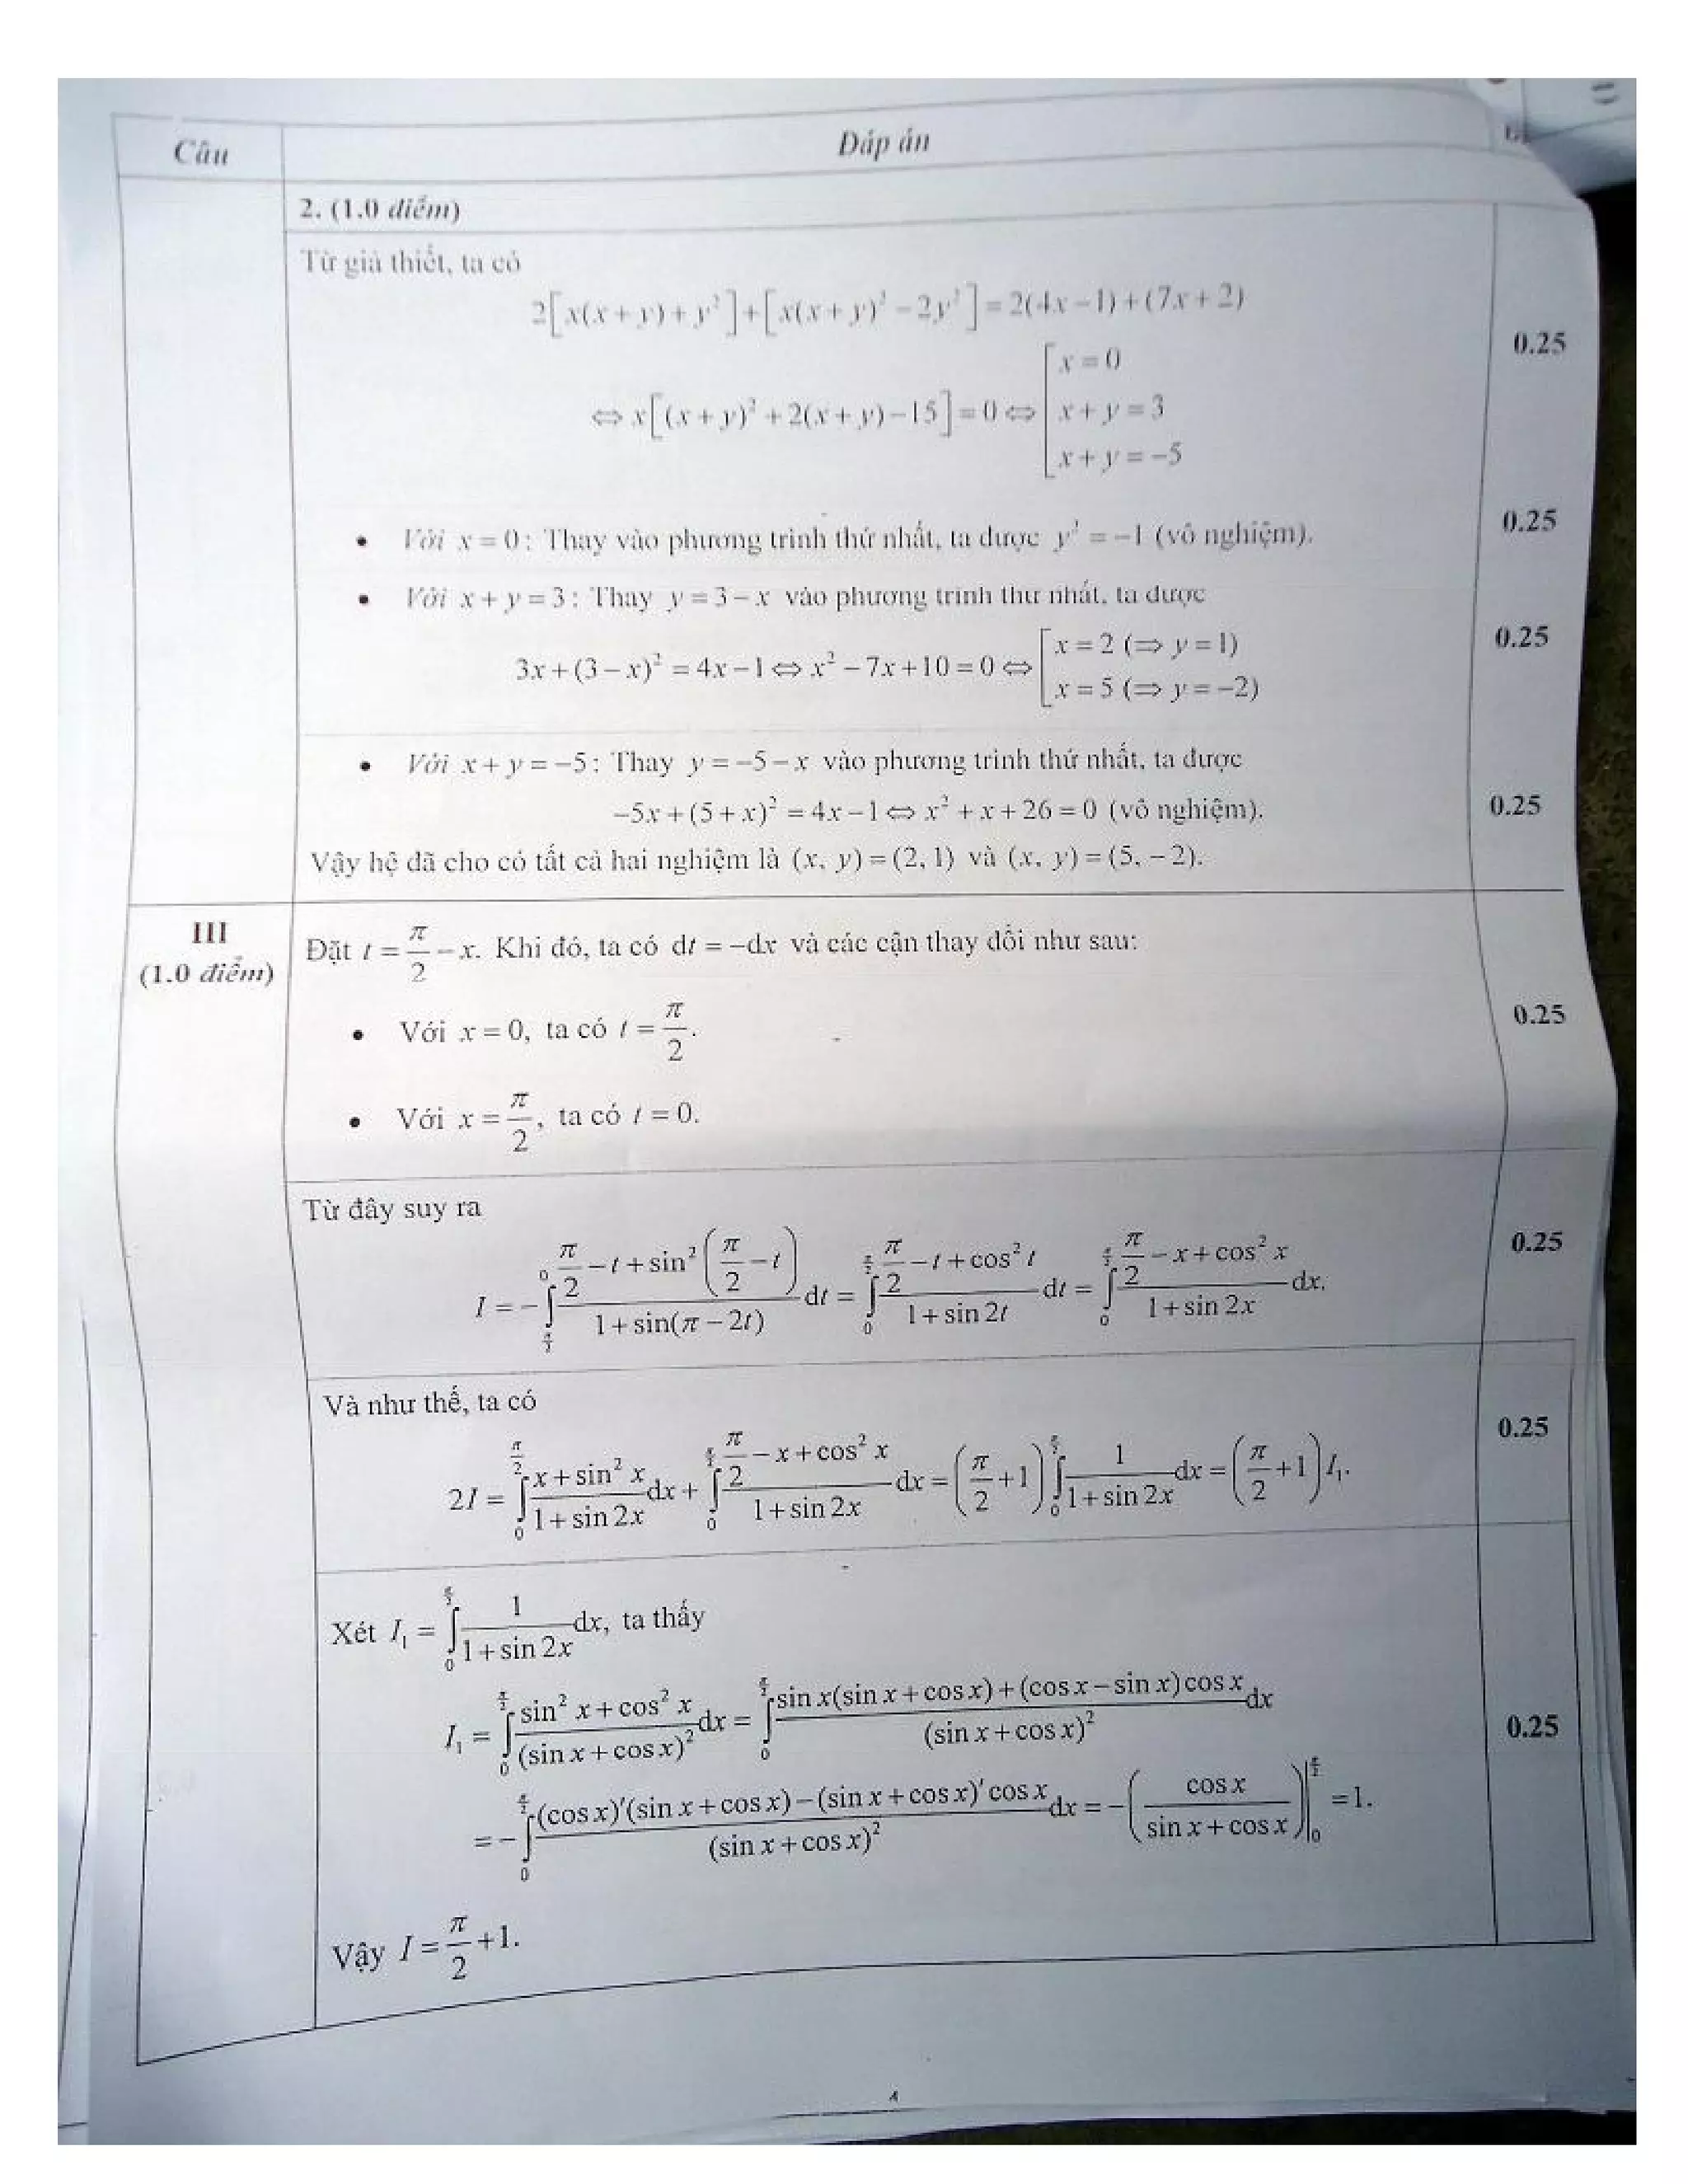 Câu Đáp án
2. (1.0 điểm)
Từ giả thiết, ta có
2[x(x + y) + y²] + [x(x + y)² − 2y²] = 2(4x − 1) + (7x + 2)
0.25
⇔ x[(x + y)² + 2(x + y) − 15] = 0 ⇔ [ x = 0
x + y = 3
x + y = −5
• Với x = 0: Thay vào phương trình thứ nhất, ta được y² = −1 (vô nghiệm). 0.25
• Với x + y = 3: Thay y = 3 − x vào phương trình thứ nhất, ta được
3x + (3 − x)² = 4x − 1 ⇔ x² − 7x + 10 = 0 ⇔ [ x = 2 (⇒ y = 1) 0.25
x = 5 (⇒ y = −2)
• Với x + y = −5: Thay y = −5 − x vào phương trình thứ nhất, ta được
−5x + (5 + x)² = 4x − 1 ⇔ x² + x + 26 = 0 (vô nghiệm). 0.25
Vậy hệ đã cho có tất cả hai nghiệm là (x, y) = (2, 1) và (x, y) = (5, − 2).
III
(1.0 điểm)
Đặt t = π/2 − x. Khi đó, ta có dt = −dx và các cận thay đổi như sau:
• Với x = 0, ta có t = π/2. 0.25
• Với x = π/2, ta có t = 0.
Từ đây suy ra
I = −∫_{π/2}^{0} (π/2 − t + sin²(π/2 − t))/(1 + sin(π − 2t)) dt = ∫_{0}^{π/2} (π/2 − t + cos² t)/(1 + sin 2t) dt = ∫_{0}^{π/2} (π/2 − x + cos² x)/(1 + sin 2x) dx. 0.25
Và như thế, ta có
2I = ∫_{0}^{π/2} (x + sin² x)/(1 + sin 2x) dx + ∫_{0}^{π/2} (π/2 − x + cos² x)/(1 + sin 2x) dx = (π/2 + 1) ∫_{0}^{π/2} 1/(1 + sin 2x) dx = (π/2 + 1) I₁. 0.25
Xét I₁ = ∫_{0}^{π/2} 1/(1 + sin 2x) dx, ta thấy
I₁ = ∫_{0}^{π/2} (sin² x + cos² x)/(sin x + cos x)² dx = ∫_{0}^{π/2} (sin x(sin x + cos x) + (cos x − sin x) cos x)/(sin x + cos x)² dx 0.25
= −∫_{0}^{π/2} ((cos x)′(sin x + cos x) − (sin x + cos x)′ cos x)/(sin x + cos x)² dx = −(cos x/(sin x + cos x))|_{0}^{π/2} = 1.
Vậy I = π/2 + 1.